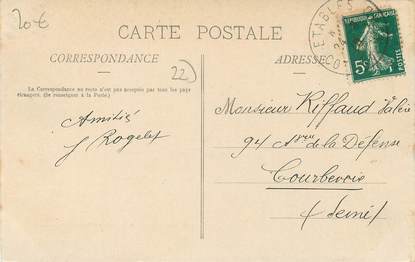 20€
CARTE POSTALE
CORRESPONDANCE
ADRESSE
22
La Correspondance au recto n'est pas acceptée par tous les pays
étrangers. (Se renseigner à la Poste).
Amitiés
J Rogelet
ETABLES
RÉPUBLIQUE FRANÇAISE
5c
POSTES
Monsieur Riffaud Valère
94 Avenue de la Défense
Courbevoie
(Seine)